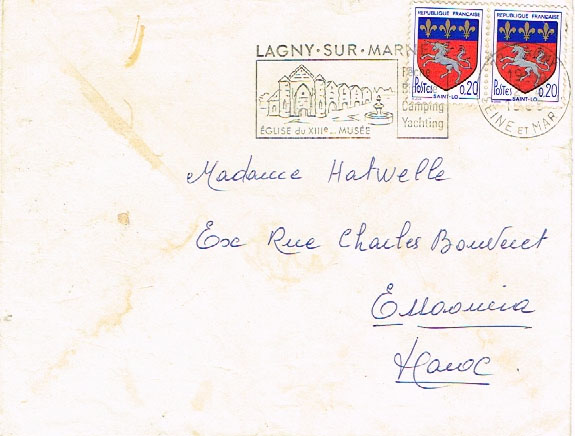 LAGNY·SUR·MARNE
ÉGLISE du XIIIe... MUSÉE
Camping
Yachting
REPUBLIQUE FRANÇAISE
POSTES 0,20
SAINT-LO
REPUBLIQUE FRANÇAISE
POSTES 0,20
SAINT-LO
SEINE ET MAR
Madame Hatwelle
Ex Rue Charles Bouvuet
Essaouira
Maroc